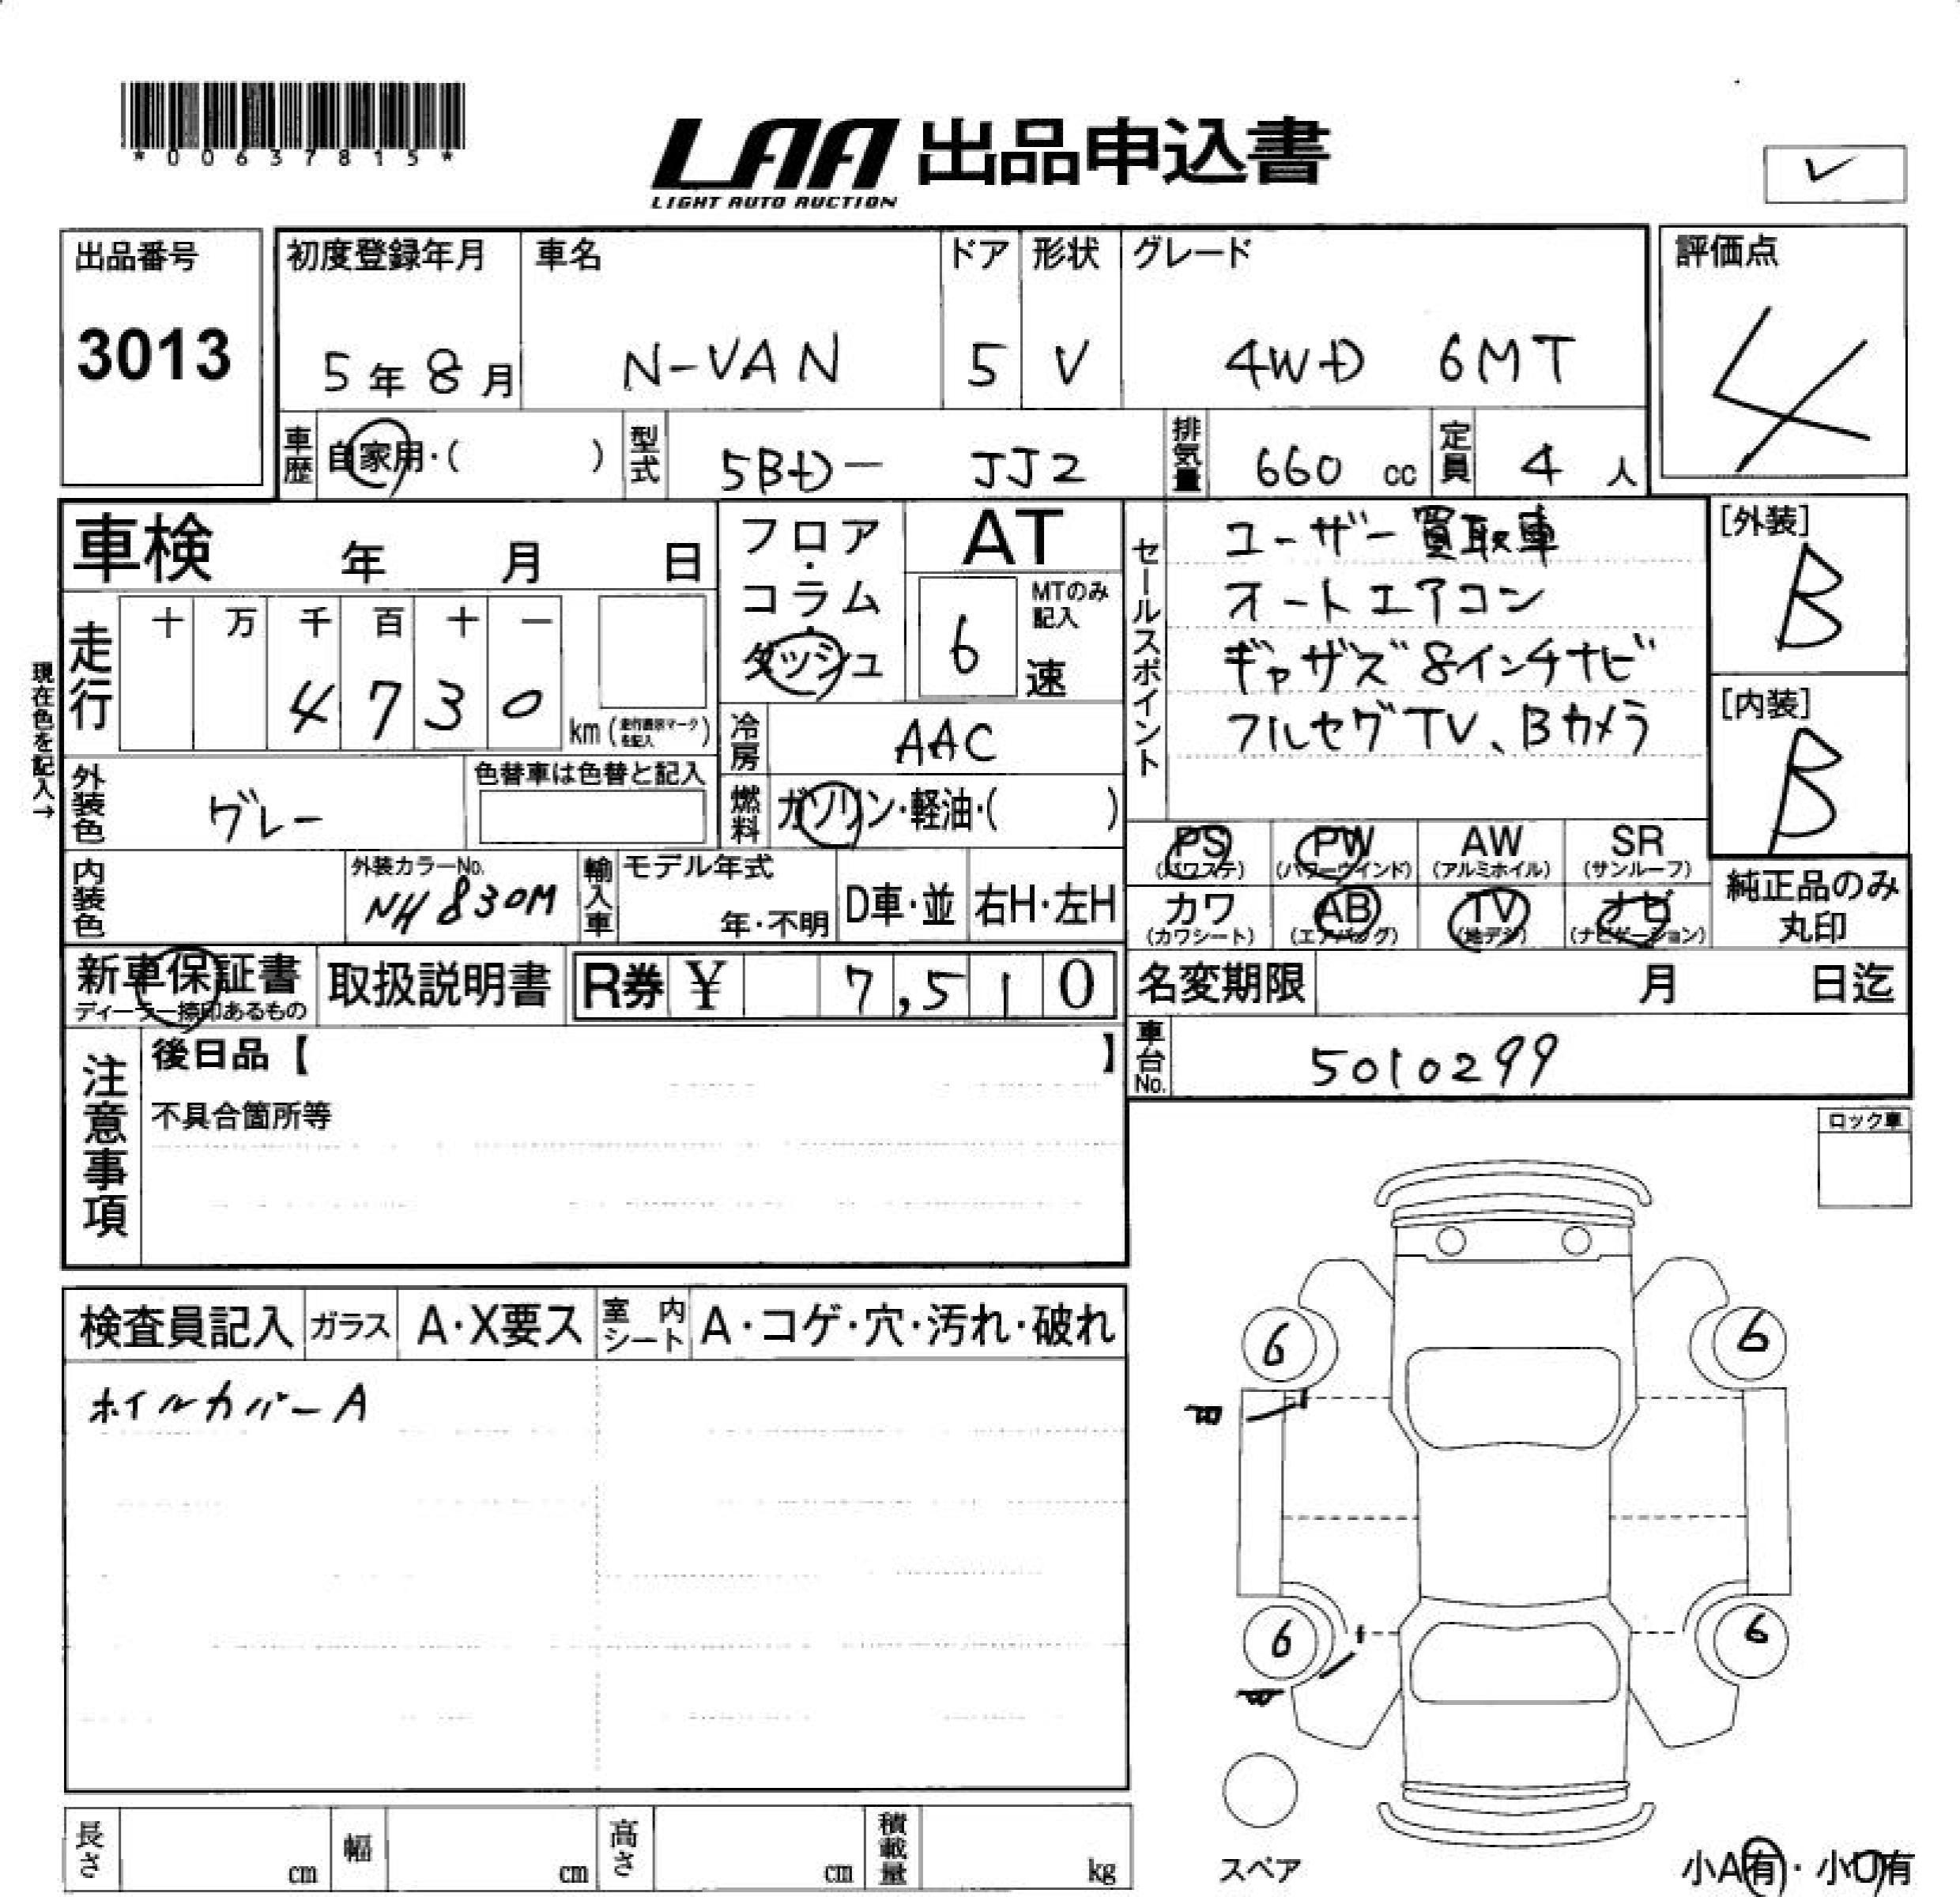 *00637815*
LAA 出品申込書
LIGHT AUTO AUCTION
出品番号
3013
初度登録年月
5年8月
車名
N-VAN
ドア
5
形状
V
グレード
4WD 6MT
評価点
4
車歴
自家用・( )
型式
5BD- JJ2
排気量
660 cc
定員
4 人
車検 年 月 日
走行
十 万 千 百 十 一
4 7 3 0
km(走行表示マークを記入)
現在色を記入→
外装色
グレー
色替車は色替と記入
内装色
外装カラーNo.
NH830M
フロア・コラム・ダッシュ
AT
MTのみ記入
6速
冷房
AAC
燃料
ガソリン・軽油・( )
輸入車
モデル年式
年・不明
D車・並
右H・左H
セールスポイント
ユーザー買取車
オートエアコン
ギャザズ8インチナビ
フルセグTV、Bカメラ
[外装]
B
[内装]
B
PS (パワステ)
PW (パワーウインド)
AW (アルミホイル)
SR (サンルーフ)
カワ (カワシート)
AB (エアバッグ)
TV (地デジ)
ナビ (ナビゲーション)
純正品のみ丸印
新車保証書
ディーラー捺印あるもの
取扱説明書
R券 ¥ 7,510
名変期限 月 日迄
車台No.
5010299
注意事項
後日品【 】
不具合箇所等
ロック車
検査員記入
ガラス
A・X要ス
室内シート
A・コゲ・穴・汚れ・破れ
ホイルカバーA
6
6
6
6
スペア
小A有・小U有
長さ cm
幅 cm
高さ cm
積載量 kg